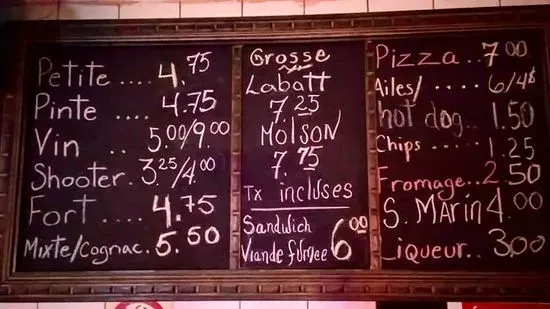 Petite .... 4.75
Pinte .... 4.75
Vin .. 5.00/9.00
Shooter. 3.25/4.00
Fort .... 4.75
Mixte/Cognac. 5.50
Grosse
Labatt
7.25
Molson
7.75
Tx incluses
Sandwich
Viande fumée 6.00
Pizza .. 7.00
Ailes/ .... 6/4$
hot dog .. 1.50
Chips ..... 1.25
Fromage... 2.50
S. Marin 4.00
Liqueur.. 3.00